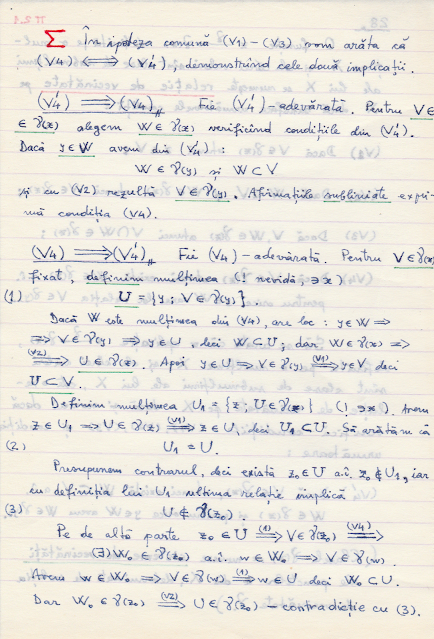 Π 2.1
Σ În ipoteza comună (V1)–(V3) vom arăta că
(V4) ⟺ (V4'), demonstrînd cele două implicații.
(V4') ⟹ (V4) Fie (V4')-adevărată. Pentru V ∈
∈ 𝒱(x) alegem W ∈ 𝒱(x) verificînd condițiile din (V4').
Dacă y ∈ W avem din (V4') :
W ∈ 𝒱(y) și W ⊂ V
și cu (V2) rezultă V ∈ 𝒱(y). Afirmațiile subliniate expri-
mă condiția (V4).
(V4) ⟹ (V4') Fie (V4)-adevărată. Pentru V ∈ 𝒱(x)
fixat, definim mulțimea (! nevidă, ∋ x)
(1) U = {y ; V ∈ 𝒱(y)}
Dacă W este mulțimea din (V4), are loc : y ∈ W ⟹
⟹ V ∈ 𝒱(y) ⟹ y ∈ U, deci W ⊂ U; dar W ∈ 𝒱(x) ⟹
(V2)⟹ U ∈ 𝒱(x). Apoi y ∈ U ⟹ V ∈ 𝒱(y) (V1)⟹ y ∈ V deci
U ⊂ V.
Definim mulțimea U₁ = {z ; U ∈ 𝒱(z)} (! ∋ x). Avem
z ∈ U₁ ⟹ U ∈ 𝒱(z) (V1)⟹ z ∈ U, deci U₁ ⊂ U. Să arătăm că
(2) U₁ = U.
Presupunem contrarul, deci există z₀ ∈ U a.î. z₀ ∉ U₁, iar
cu definiția lui U₁ ultima relație implică
(3) U ∉ 𝒱(z₀).
Pe de altă parte z₀ ∈ U (1)⟹ V ∈ 𝒱(z₀) (V4)⟹
(∃) W₀ ∈ 𝒱(z₀) a.î. w ∈ W₀ ⟹ V ∈ 𝒱(w).
Avem w ∈ W₀ ⟹ V ∈ 𝒱(w) (1)⟹ w ∈ U deci W₀ ⊂ U.
Dar W₀ ∈ 𝒱(z₀) (V2)⟹ U ∈ 𝒱(z₀) – contradicție cu (3).